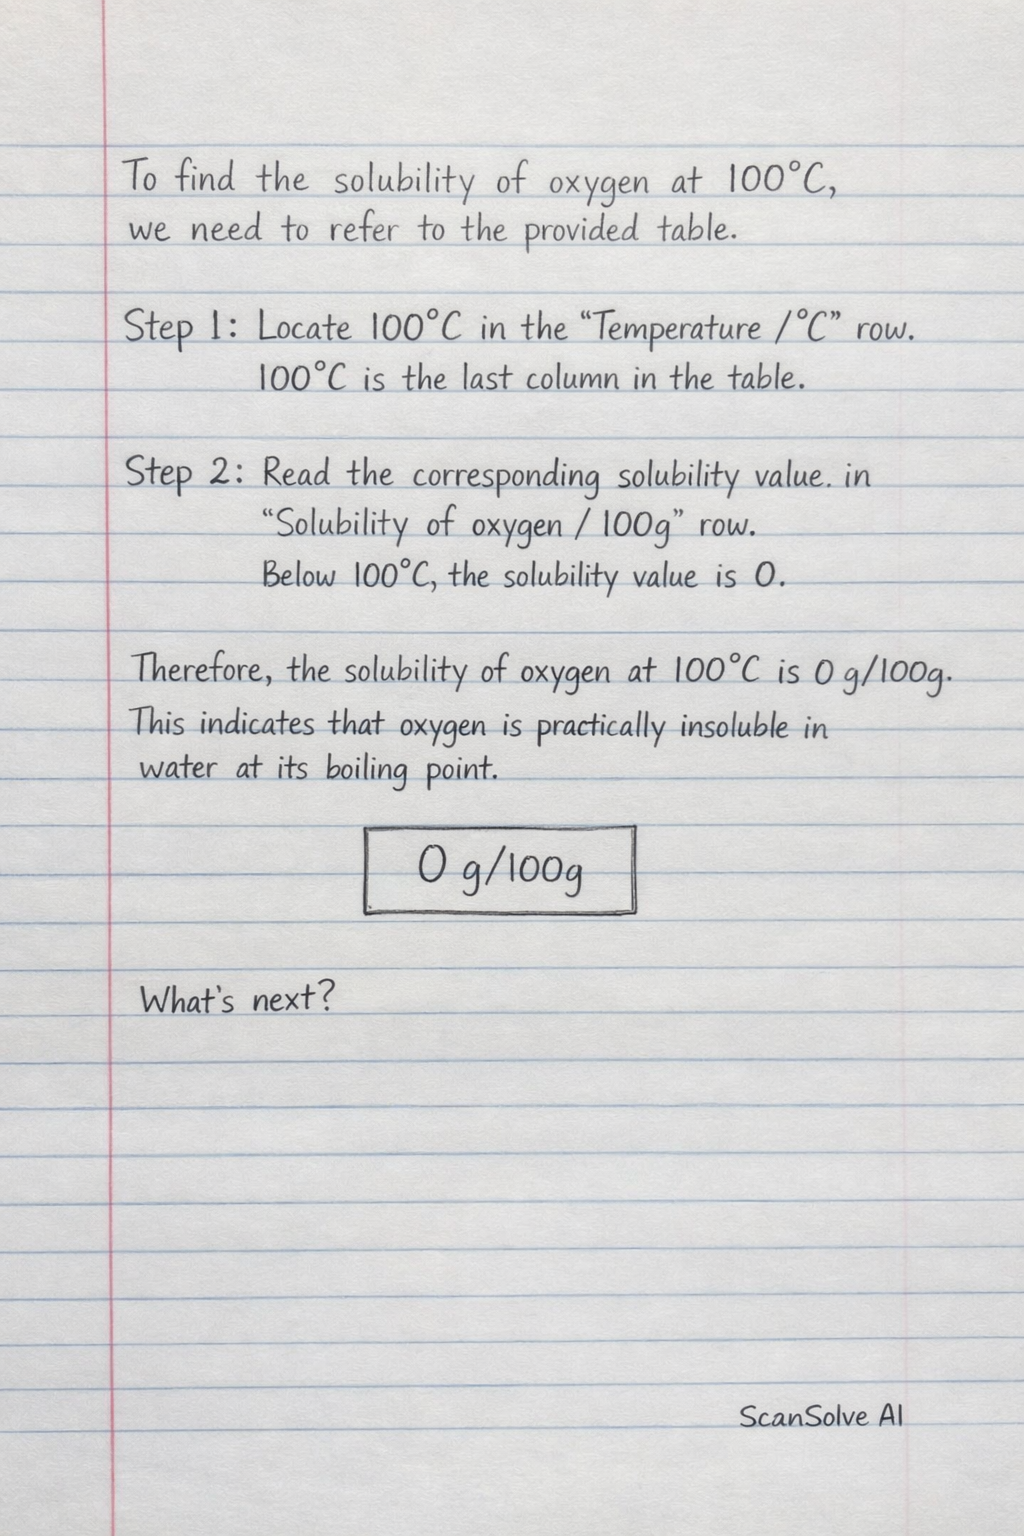 To find the solubility of oxygen at 100°C,
we need to refer to the provided table.
Step 1: Locate 100°C in the “Temperature /°C” row.
100°C is the last column in the table.
Step 2: Read the corresponding solubility value. in
“Solubility of oxygen / 100g” row.
Below 100°C, the solubility value is 0.
Therefore, the solubility of oxygen at 100°C is 0 g/100g.
This indicates that oxygen is practically insoluble in
water at its boiling point.
0 g/100g
What's next?
ScanSolve AI